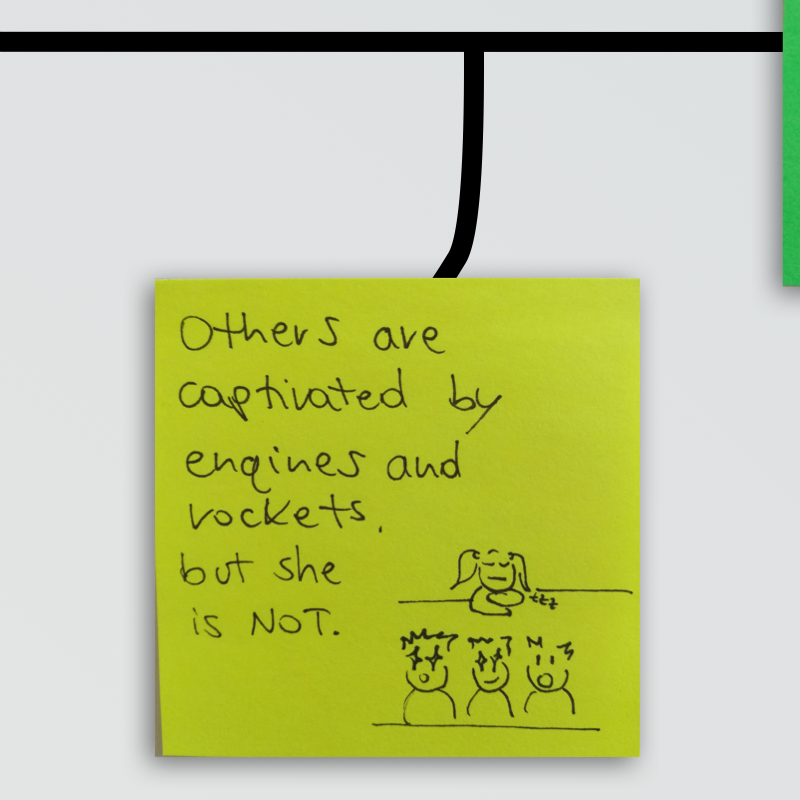 Others are
captivated by
engines and
rockets,
but she
is NOT.
zzz